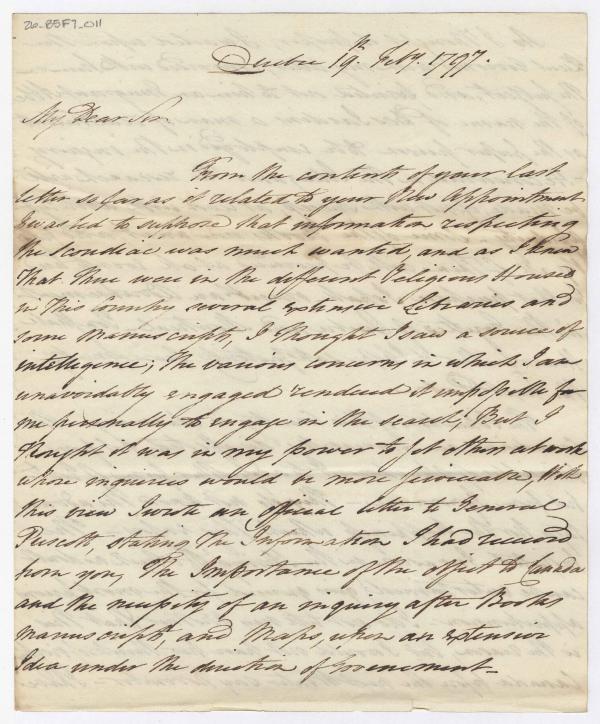 26-B5F7-011
Quebec 19th Feby. 1797.
My Dear Sir
From the contents of your last
letter so far as it related to your New Appointment
I was led to suppose that information respecting
the Scoudiac was much wanted, and as I knew
That there were in the different Religious Houses
in This Country several extensive Libraries and
some Manuscripts, I thought I saw a source of
intelligence; The various concerns in which I am
unavoidably engaged rendered it impossible for
me personally to engage in the search, But I
thought it was in my power to set others at work
whose inquiries would be more serviceable, With
this view I wrote an official letter to General
Prescott, stating the Information I had received
from you, The Importance of the object to Canada
and the necessity of an inquiry after Books
Manuscripts, and Maps, upon an extensive
Idea under the direction of Government.